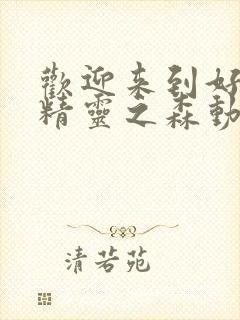 歡迎来到好
精靈之森動
清若苑